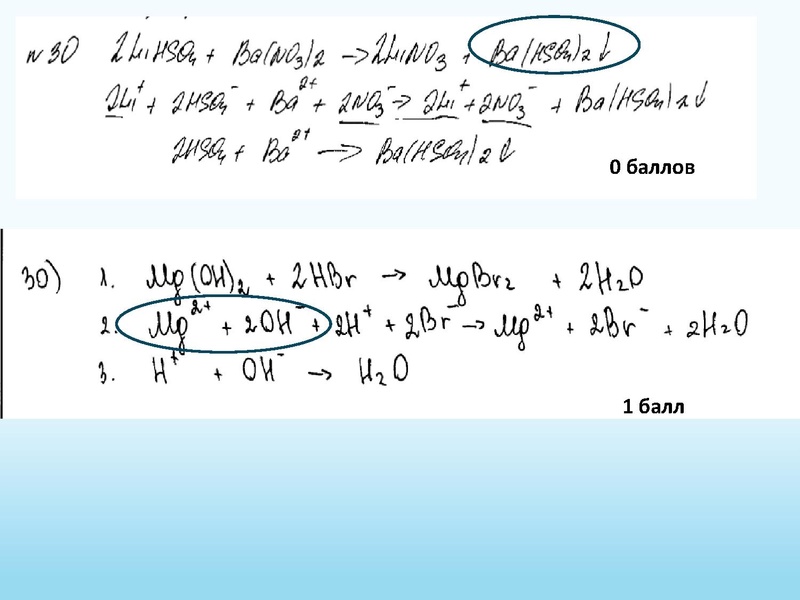 №30 2LiHSO₄ + Ba(NO₃)₂ → 2LiNO₃ + Ba(HSO₄)₂↓
2Li⁺ + 2HSO₄⁻ + Ba²⁺ + 2NO₃⁻ → 2Li⁺ + 2NO₃⁻ + Ba(HSO₄)₂↓
2HSO₄ + Ba²⁺ → Ba(HSO₄)₂↓
0 баллов
30) 1. Mg(OH)₂ + 2HBr → MgBr₂ + 2H₂O
2. Mg²⁺ + 2OH⁻ + 2H⁺ + 2Br⁻ → Mg²⁺ + 2Br⁻ + 2H₂O
3. H⁺ + OH⁻ → H₂O
1 балл